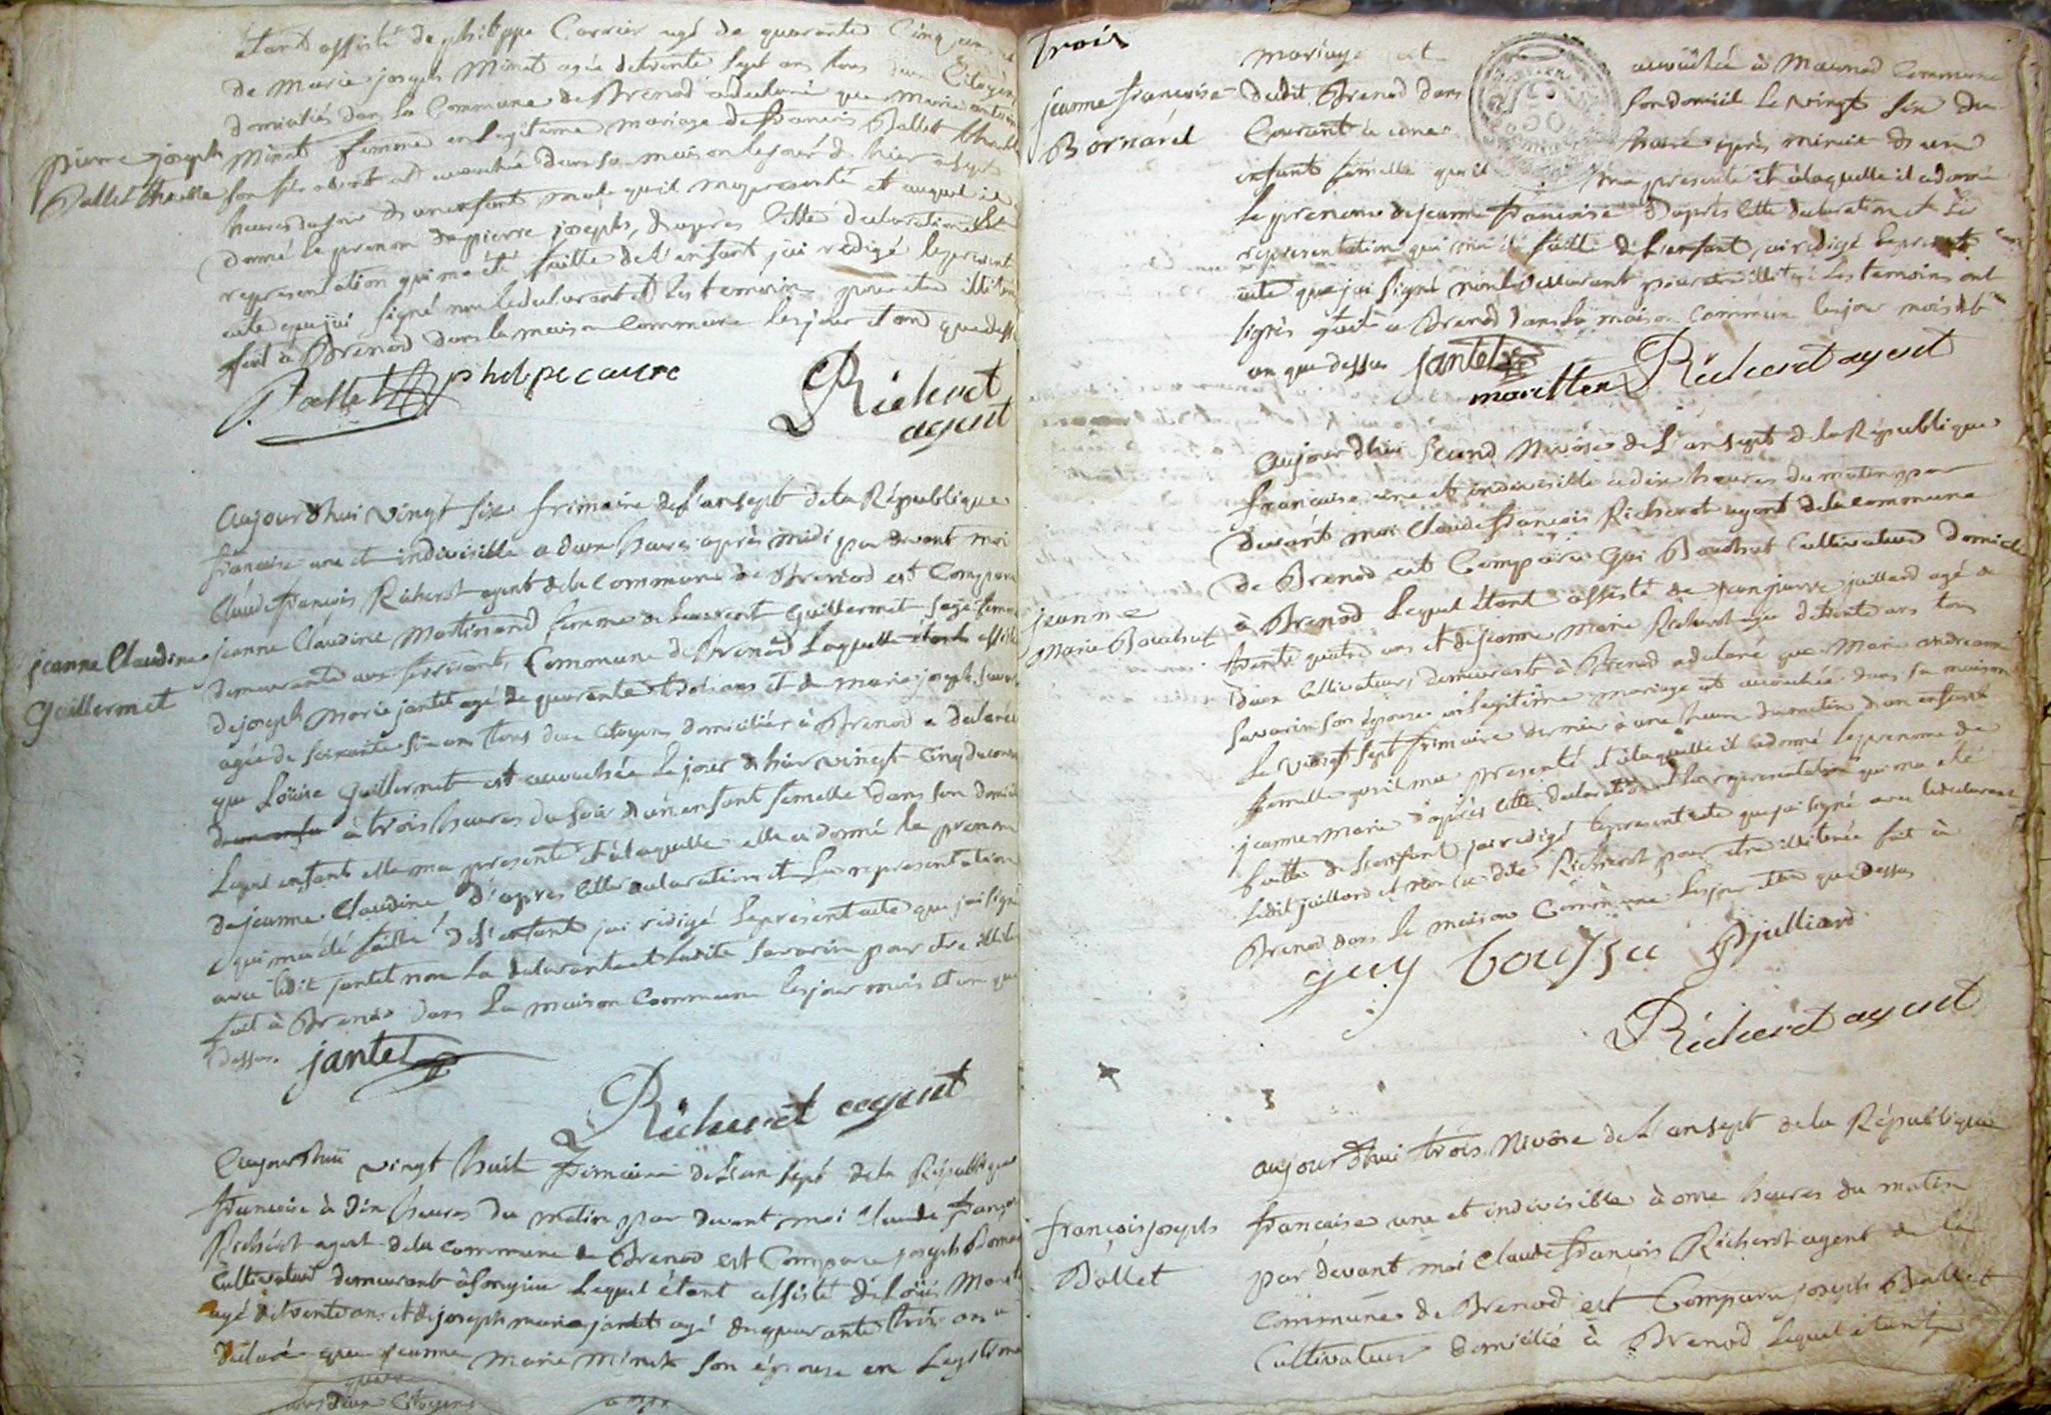 étant assisté de philippe Carrier agé de quarante Cinq ans et
de Marie joseph Minet agée de trente sept ans tous deux Citoyens
domiciliés dans la Commune de Brenod a declaré que Marie
pierre joseph
Ballet
Minet femme en legitime mariage de francois Ballet
son fils est accouchée dans sa maison le jour d'hier a sept
heures du soir d'un enfant male qu'il m'a presenté et auquel il
donné le prenom de pierre joseph, d'apres cette declaration et la
representation qui m'a été faitte de l'enfant j'ai redigé le present
acte que j'ai signé non le declarant et les temoins pour etre
fait à Brenod dans la maison Commune les jour et an que dessus
Ballet philipe carire
Richerot
agent
Aujourdhui vingt six frimaire de l'an sept de la République
francaise une et indivisible a deux heures après midi par devant moi
Claude françois Richerot agent de la Commune de Brenod est Comparu
jeanne Claudine
Guillermet
jeanne Claudine Martinand femme de Laurent Guillermet sage femme
demeurante aux Commune de Brenod Laquelle étant assistée
de joseph Marie jantet agé de quarante trois ans et de Marie joseph
agée de soixante six ans tous deux Citoyens domiciliés à Brenod a declaré
que Loüise Guillermet est accouchée le jour d'hier vingt cinq du courant
à trois heures du soir d'un enfant femelle dans son domicile
Lequel enfant elle m'a presenté et à laquelle elle a donné le prenom
de jeanne Claudine d'apres cette declaration et la representation
qui m'a été faitte de l'enfant j'ai redigé le present acte que j'ai signé
avec ledit jantet non la declarante et ladite Savarin pour etre
fait à Brenod dans la maison Commune les jour mois et an que
dessus. jantet
Richerot agent
Aujourdhui vingt huit frimaire de l'an sept de la République
francaise à dix heures du matin par devant moi Claude françois
Richerot agent de la commune de Brenod est Comparu joseph Bornard
Cultivateur demeurant à Lequel étant assisté de Loüis
agé de trente ans et de joseph marie jantet agé de quarante trois ans a
declaré que jeanne Marie Minet son épouse en Legitime
tous deux Citoyens
trois
jeanne francoise
Bornard
mariage est accouchée à Commune
dudit Brenod dans son domicile le vingt six du
Courant à une heure après minuit d'un
enfant femelle qu'il m'a presenté et à laquelle il a donné
le prenom de jeanne francoise d'après cette declaration et la
representation qui m'a été faitte de l'enfant, j'ai redigé le present
acte que j'ai signé non le declarant pour etre illiteré les temoins ont
signés fait à Brenod dans la maison Commune les jour mois et
an que dessus jantet
Richerot agent
Aujourdhui second Nivôse de l'an sept de la République
francaise une et indivisible a dix heures du matin par
devant moi Claude françois Richerot agent de la commune
de Brenod est Comparu Cultivateur domicilié
jeanne
Marie
à Brenod Lequel étant assisté de jean pierre juillard agé de
trente quatre ans et de jeanne marie Richerot agée de trente ans tous
deux Cultivateurs, demeurants à Brenod a declaré que Marie andreanne
Savarin son épouse en legitime mariage est accouchée dans sa maison
le vingt sept frimaire dernier à une heure du matin d'un enfant
femelle qu'il m'a presenté et à laquelle il a donné le prenom de
jeanne marie d'après cette declaration et la representation qui m'a été
faitte de l'enfant j'ai redigé le present acte que j'ai signé avec le declarant
ledit juillard et non la dite Richerot pour etre illiterée fait à
Brenod dans la maison Commune les jour et an que dessus
guy
Richerot agent
aujourdhui trois Nivôse de l'an sept de la République
françois joseph
Ballet
francaise une et indivisible à onze heures du matin
par devant moi Claude françois Richerot agent de la
Commune de Brenod est Comparu joseph Ballet
Cultivateur domicilié à Brenod lequel étant